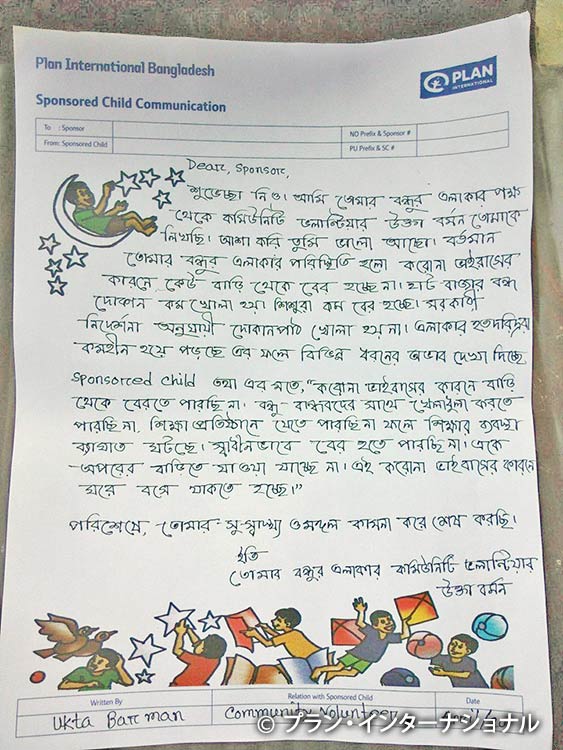 Plan International Bangladesh
PLAN
INTERNATIONAL
Sponsored Child Communication
To : Sponsor
NO Prefix & Sponsor #
From: Sponsored Child
PU Prefix & SC #
Dear, Sponsor,
শুভেচ্ছা নিও। আমি তোমার বন্ধুর এলাকার পক্ষ
থেকে কমিউনিটি ভলান্টিয়ার উক্তা বর্মন তোমাকে
লিখছি। আশা করি তুমি ভালো আছো। বর্তমান
তোমার বন্ধুর এলাকার পরিস্থিতি হলো করোনা ভাইরাসের
কারনে কেউ বাড়ি থেকে বের হচ্ছে না। হাট বাজার বন্ধ
দোকান কম খোলা হয়। শিশুরা কম বের হচ্ছে। সরকারী
নির্দেশনা অনুযায়ী দোকানপাট খোলা হয় না। এলাকার হতদরিদ্ররা
কর্মহীন হয়ে পড়ছে এর ফলে বিভিন্ন ধরনের অভাব দেখা দিচ্ছে
Sponsored child তথা এর মতে, "করোনা ভাইরাসের কারনে বাড়ি
থেকে বেরতে পারছি না। বন্ধু বান্ধবদের সাথে খেলাধুলা করতে
পারছি না, শিক্ষা প্রতিষ্ঠানে যেতে পারছি না ফলে শিক্ষার ব্যবস্থা
ব্যাঘাত ঘটছে। স্বাধীনভাবে বের হতে পারছি না। একে
অপরের বাড়িতে যাওয়া যাচ্ছে না। এই করোনা ভাইরাসের কারনে
ঘরে বসে থাকতে হচ্ছে।"
পরিশেষে, তোমার সু-স্বাস্থ্য ও মঙ্গল কামনা করে শেষ করছি।
ইতি
তোমার বন্ধুর এলাকার কমিউনিটি ভলান্টিয়ার
উক্তা বর্মন
Written By
Relation with Sponsored Child
Date
Ukta Barman
Community Volunteer
© プラン・インターナショナル